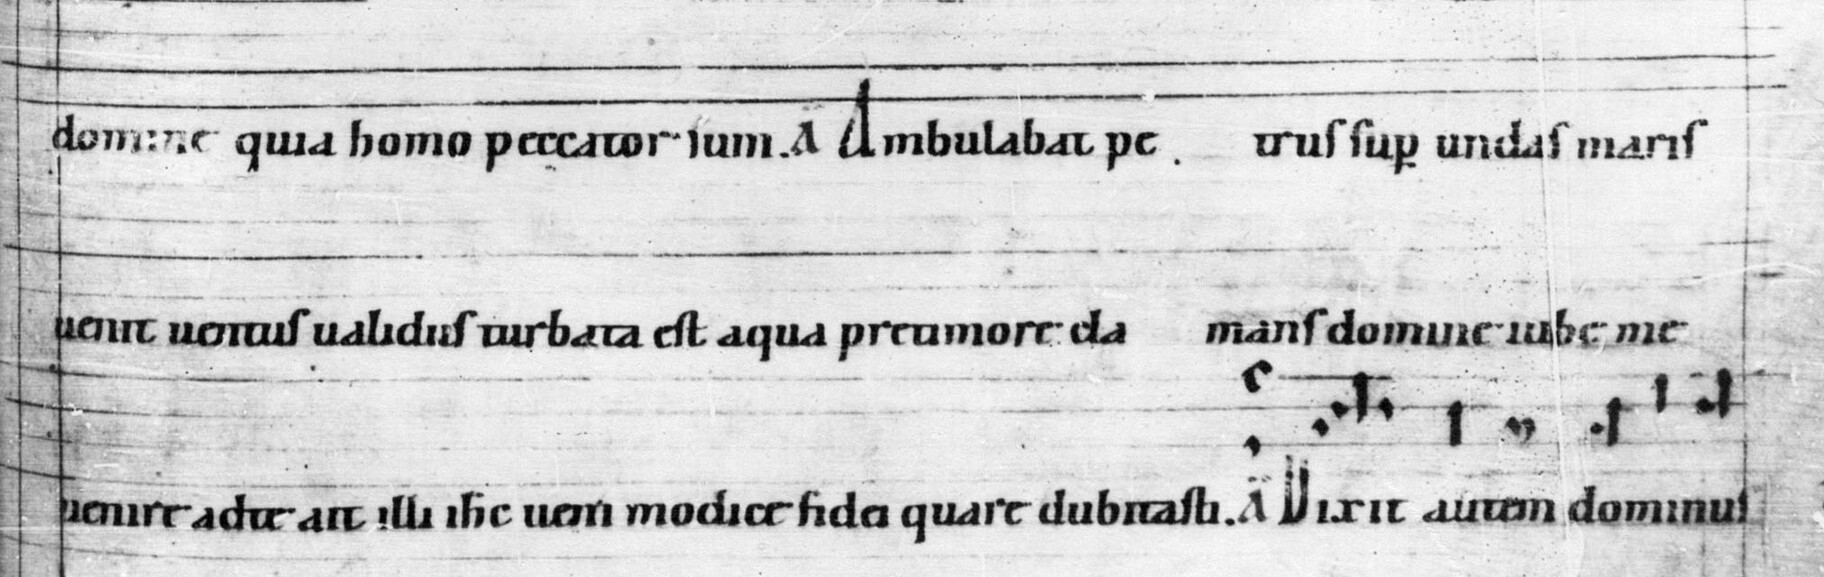 domine quia homo peccator sum. A Ambulabat pe trus sup undas maris
uenit uentus ualidus turbata est aqua pretimore cla mans domine iube me
uenire adte ait illi ihc ueni modice fidei quare dubitasti. A Dixit autem dominus